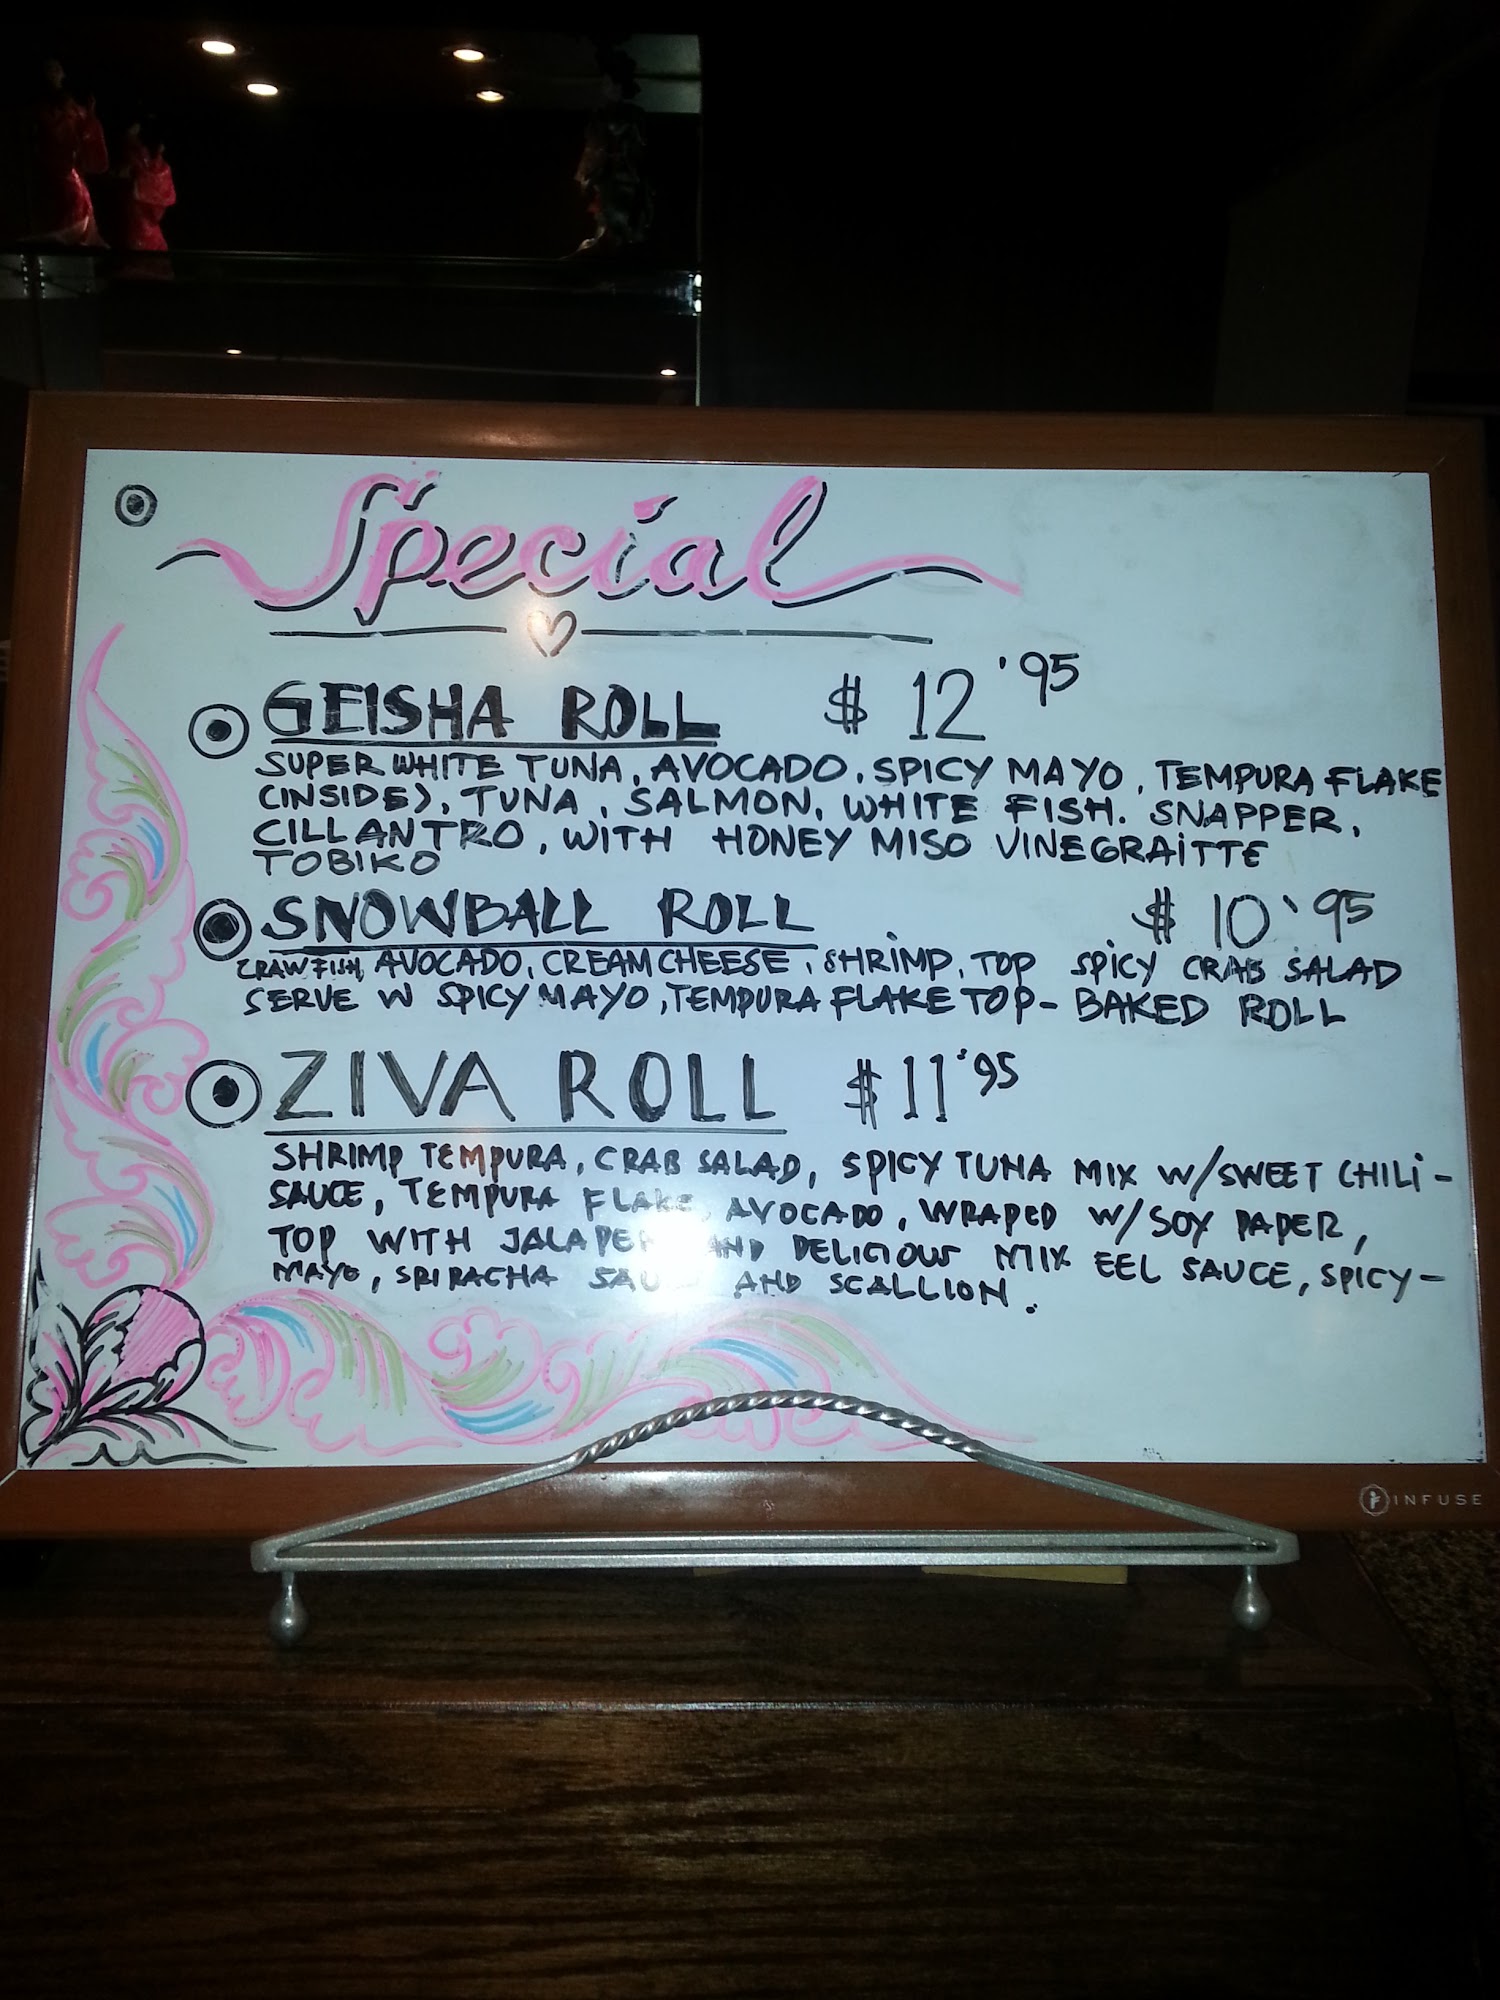 Special
GEISHA ROLL $12'95
SUPER WHITE TUNA, AVOCADO, SPICY MAYO, TEMPURA FLAKE
(INSIDE), TUNA, SALMON, WHITE FISH. SNAPPER,
CILLANTRO, WITH HONEY MISO VINEGRAITTE
TOBIKO
SNOWBALL ROLL $10'95
CRAWFISH, AVOCADO, CREAM CHEESE, SHRIMP, TOP SPICY CRAB SALAD
SERVE W SPICY MAYO, TEMPURA FLAKE TOP - BAKED ROLL
ZIVA ROLL $11'95
SHRIMP TEMPURA, CRAB SALAD, SPICY TUNA MIX W/SWEET CHILI -
SAUCE, TEMPURA FLAKE, AVOCADO, WRAPED W/SOY PAPER,
TOP WITH AND DELICIOUS MIX EEL SAUCE, SPICY -
MAYO, SRIRACHA AND SCALLION.
INFUSE